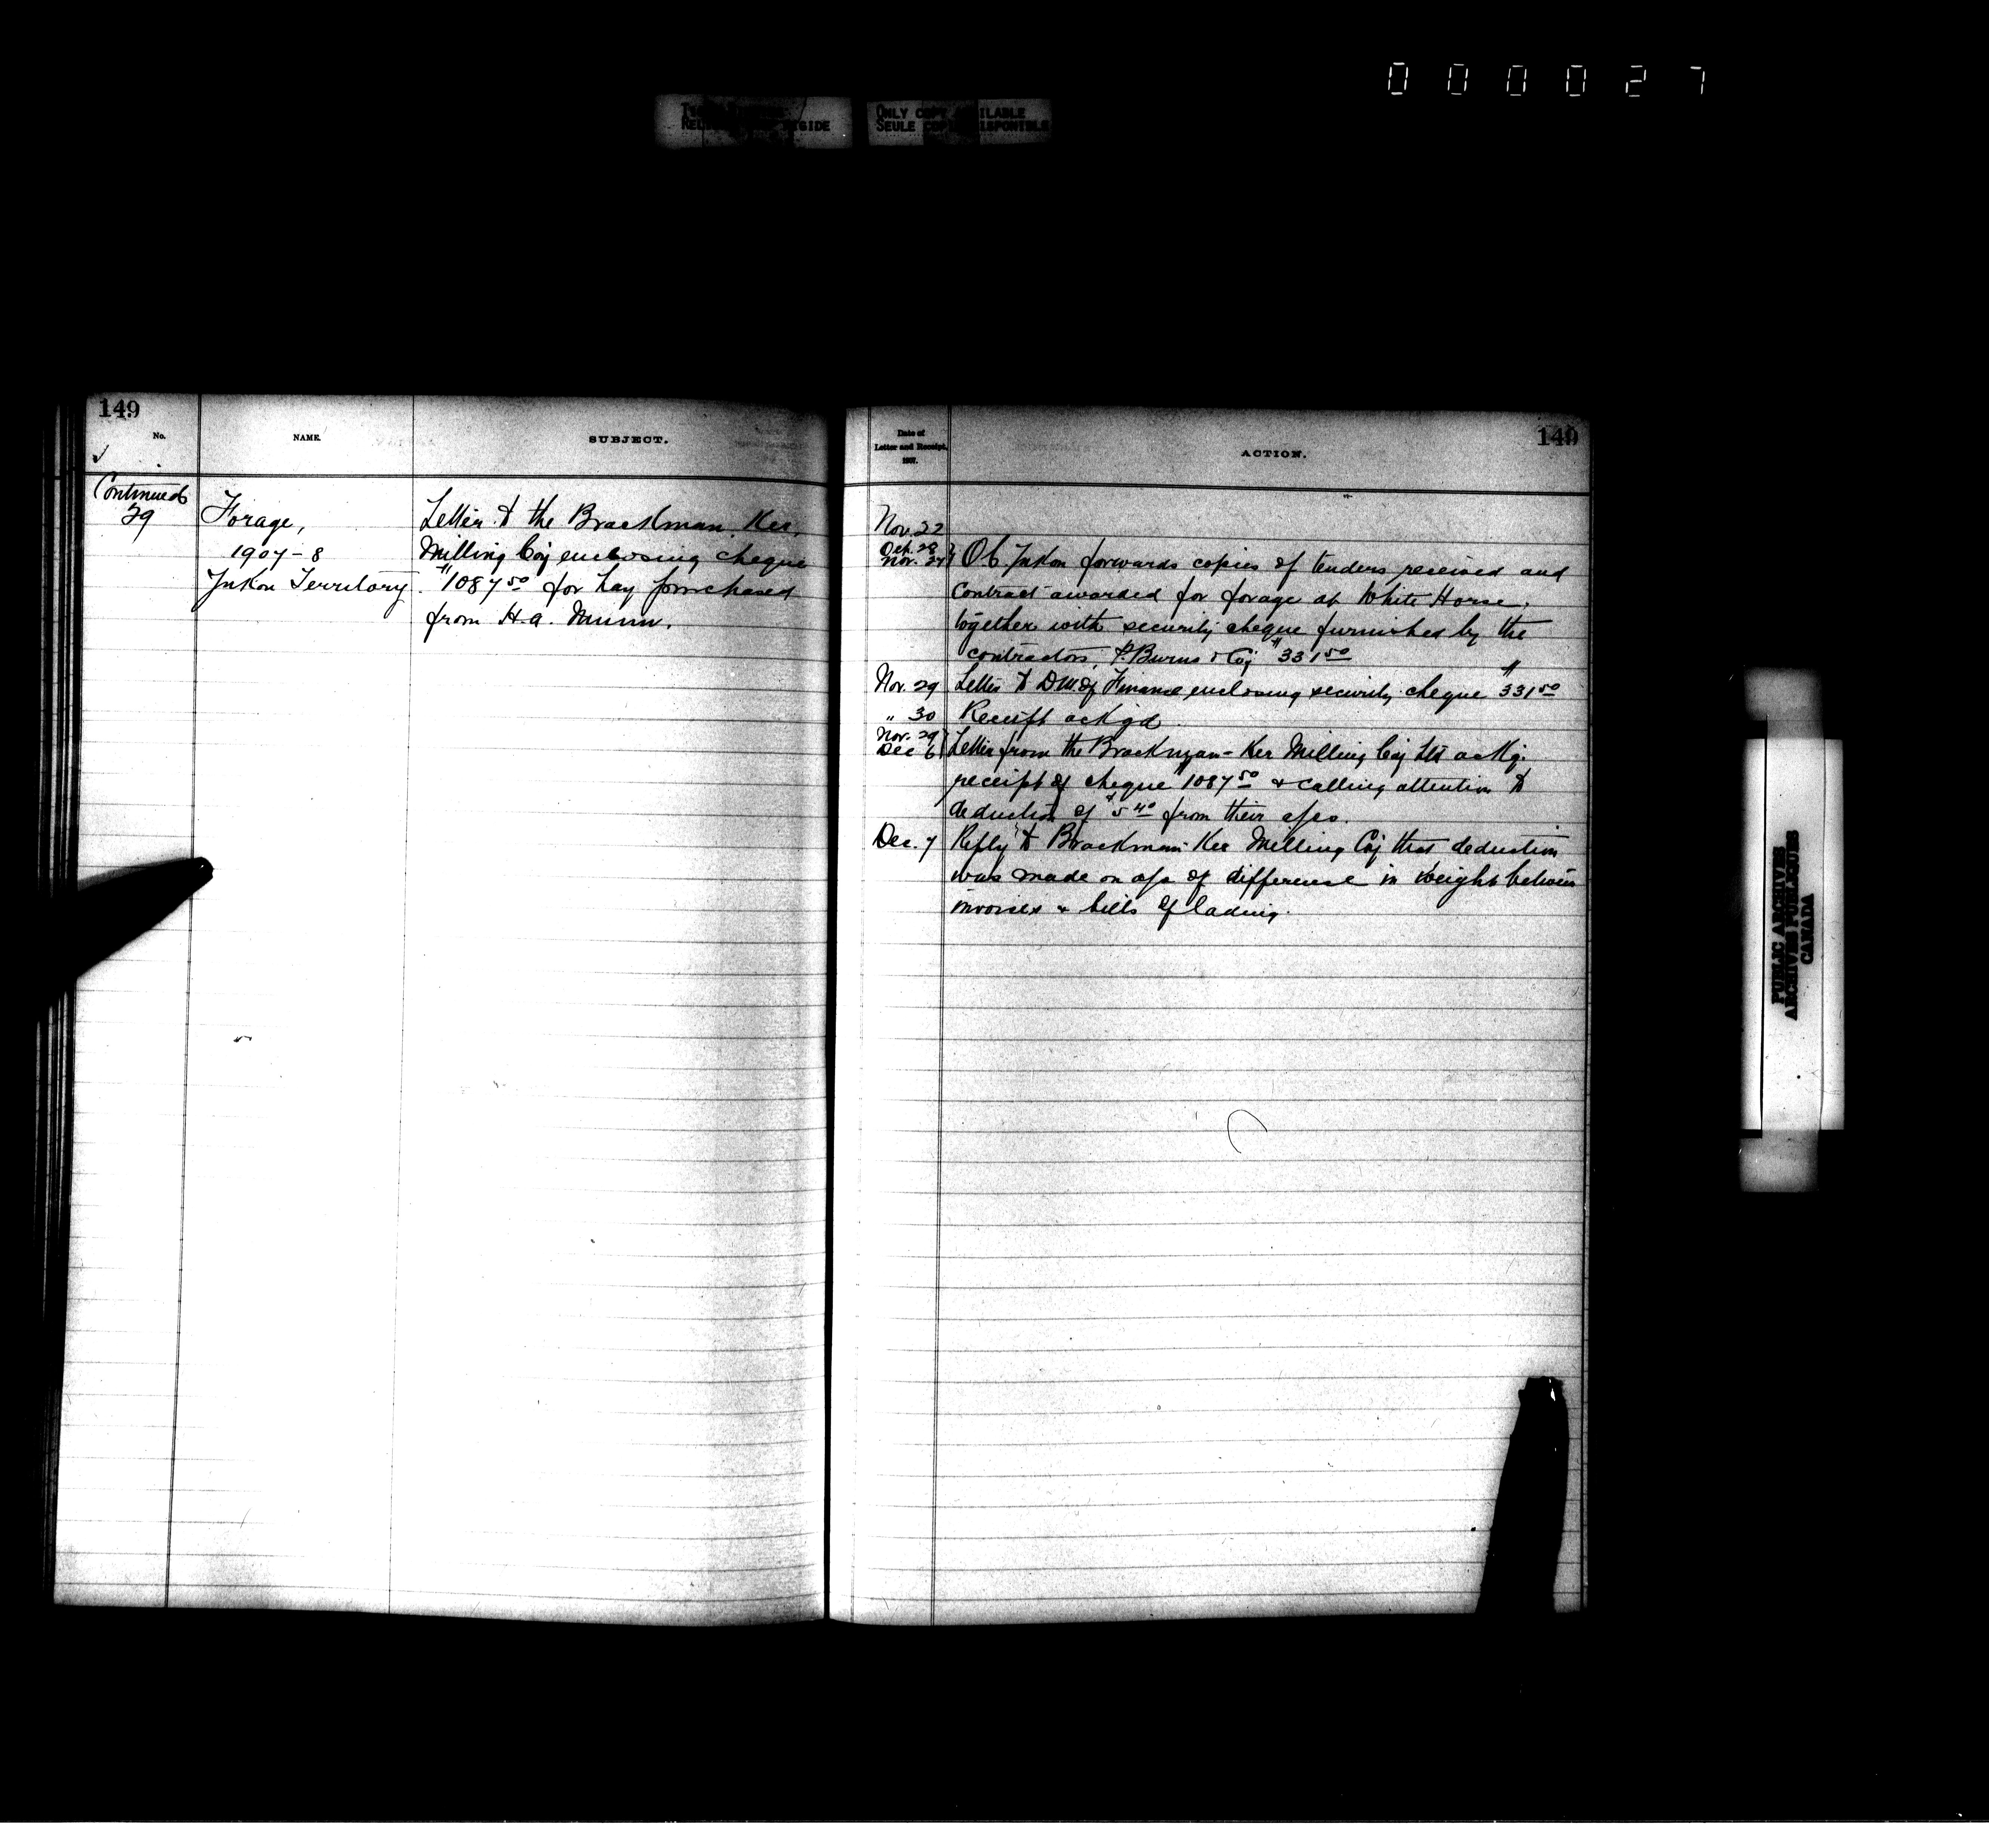 000027
ONLY COPY AVAILABLE
SEULE COPIE DISPONIBLE
149
No.
NAME.
SUBJECT.
Continued
29
Forage,
1907-8
Yukon Territory.
Letter to the Brackman Ker
Milling Coy enclosing cheque
$1087.50 for hay purchased
from H.A. Munn.
149
Date of
Letter and Receipt,
1907.
ACTION.
Nov. 22
Oct. 28
Nov. 27
O.C. Yukon forwards copies of tenders received and
contract awarded for forage at White Horse,
together with security cheque furnished by the
contractors, P. Burns & Coy $331.50
Nov. 29 Letter to D.M. of Finance enclosing security cheque $331.50
" 30 Receipt ack'gd.
Nov. 29
Dec 6 Letter from the Brackman-Ker Milling Coy Ltd ackg.
receipt of cheque $1087.50 & calling attention to
deduction of $5.40 from their a/cs.
Dec. 7 Reply to Brackman-Ker Milling Coy that deduction
was made on a/c of difference in weight between
invoices & bills of lading.
PUBLIC ARCHIVES
ARCHIVES PUBLIQUES
CANADA